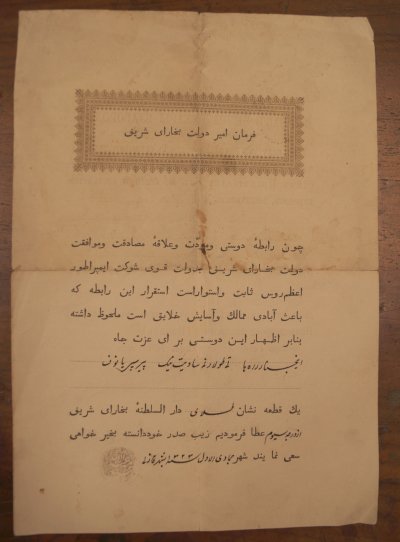 فرمان امیر دولت بخارای شریف
چون رابطهٔ دوستی ومودّت وعلاقهٔ مصادقت وموافقت
دولت بخارای شریف بدولت قوی شوکت ایمپراطور
اعظم روس ثابت واستواراست استقرار این رابطه که
باعث آبادی ممالک وآسایش خلایق است ملحوظ داشته
بنابر اظهار این دوستی برای عزت جاه
یك قطعه نشان طلای دار السلطنهٔ بخارای شریف
عطا فرمودیم زیب صدر خوددانسته بخیر خواهی
سعی نمایند شهر جمادی الاول سنه ۱۳۲۳